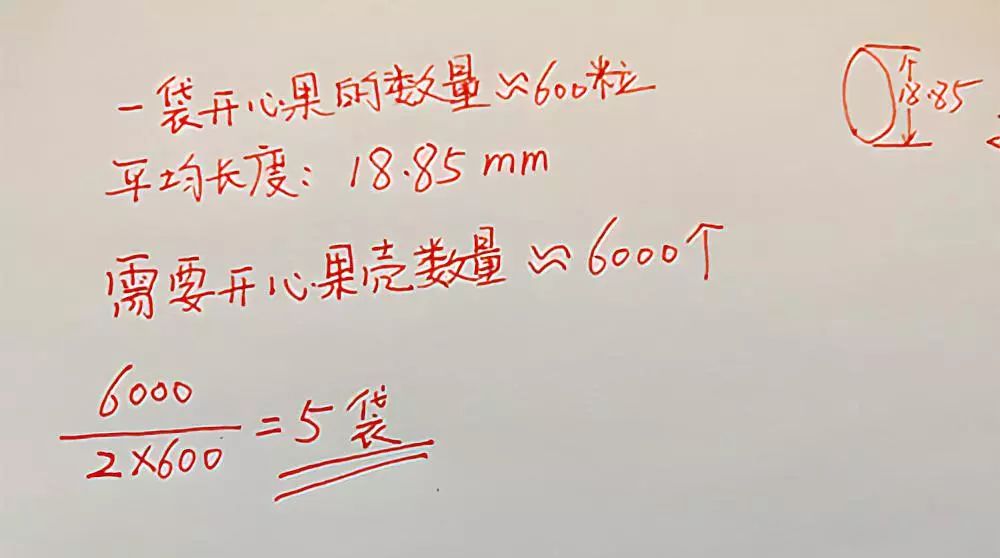 一袋开心果的数量≈600粒
18.85
平均长度: 18.85 mm
需要开心果壳数量≈6000个
6000
2×600
=5袋